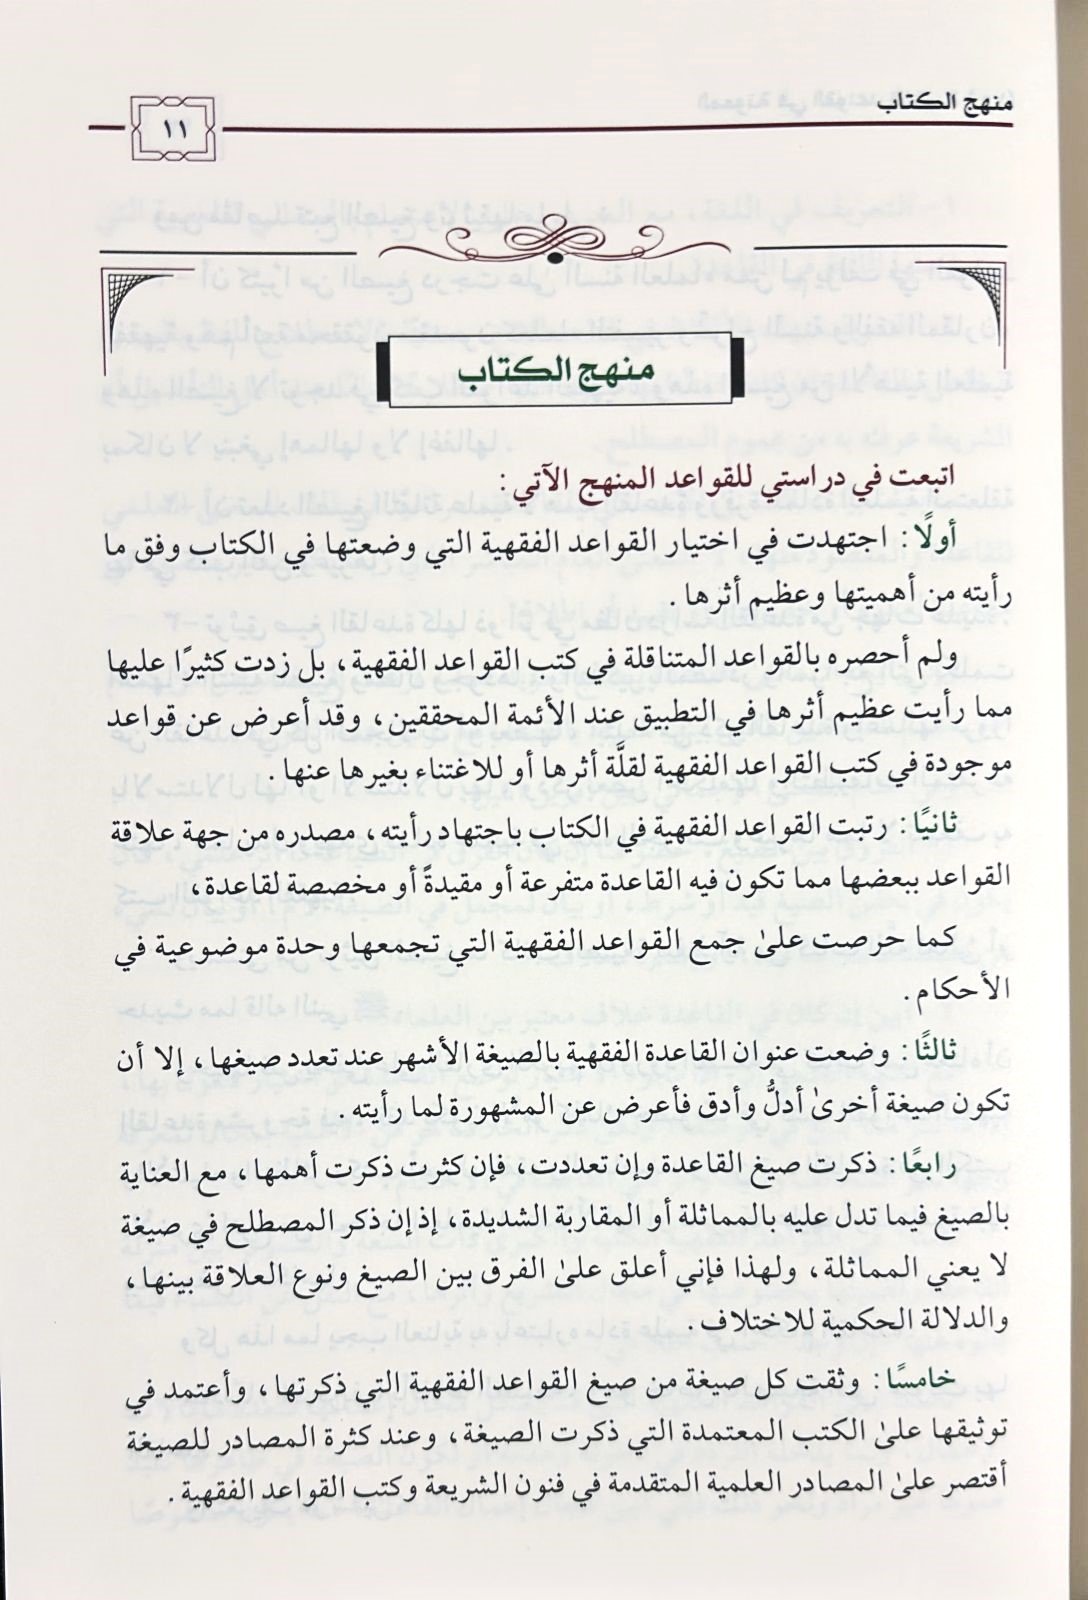 منهج الكتاب
١١
منهج الكتاب
اتبعت في دراستي للقواعد المنهج الآتي :
أولًا : اجتهدت في اختيار القواعد الفقهية التي وضعتها في الكتاب وفق ما
رأيته من أهميتها وعظيم أثرها .
ولم أحصره بالقواعد المتناقلة في كتب القواعد الفقهية ، بل زدت كثيرًا عليها
مما رأيت عظيم أثرها في التطبيق عند الأئمة المحققين ، وقد أعرض عن قواعد
موجودة في كتب القواعد الفقهية لقلَّة أثرها أو للاغتناء بغيرها عنها .
ثانيًا : رتبت القواعد الفقهية في الكتاب باجتهاد رأيته ، مصدره من جهة علاقة
القواعد ببعضها مما تكون فيه القاعدة متفرعة أو مقيدةً أو مخصصة لقاعدة ،
كما حرصت علىٰ جمع القواعد الفقهية التي تجمعها وحدة موضوعية في
الأحكام .
ثالثًا : وضعت عنوان القاعدة الفقهية بالصيغة الأشهر عند تعدد صيغها ، إلا أن
تكون صيغة أخرىٰ أدلُّ وأدق فأعرض عن المشهورة لما رأيته .
رابعًا : ذكرت صيغ القاعدة وإن تعددت ، فإن كثرت ذكرت أهمها ، مع العناية
بالصيغ فيما تدل عليه بالمماثلة أو المقاربة الشديدة ، إذ إن ذكر المصطلح في صيغة
لا يعني المماثلة ، ولهذا فإني أعلق علىٰ الفرق بين الصيغ ونوع العلاقة بينها ،
والدلالة الحكمية للاختلاف .
خامسًا : وثقت كل صيغة من صيغ القواعد الفقهية التي ذكرتها ، وأعتمد في
توثيقها علىٰ الكتب المعتمدة التي ذكرت الصيغة ، وعند كثرة المصادر للصيغة
أقتصر علىٰ المصادر العلمية المتقدمة في فنون الشريعة وكتب القواعد الفقهية .